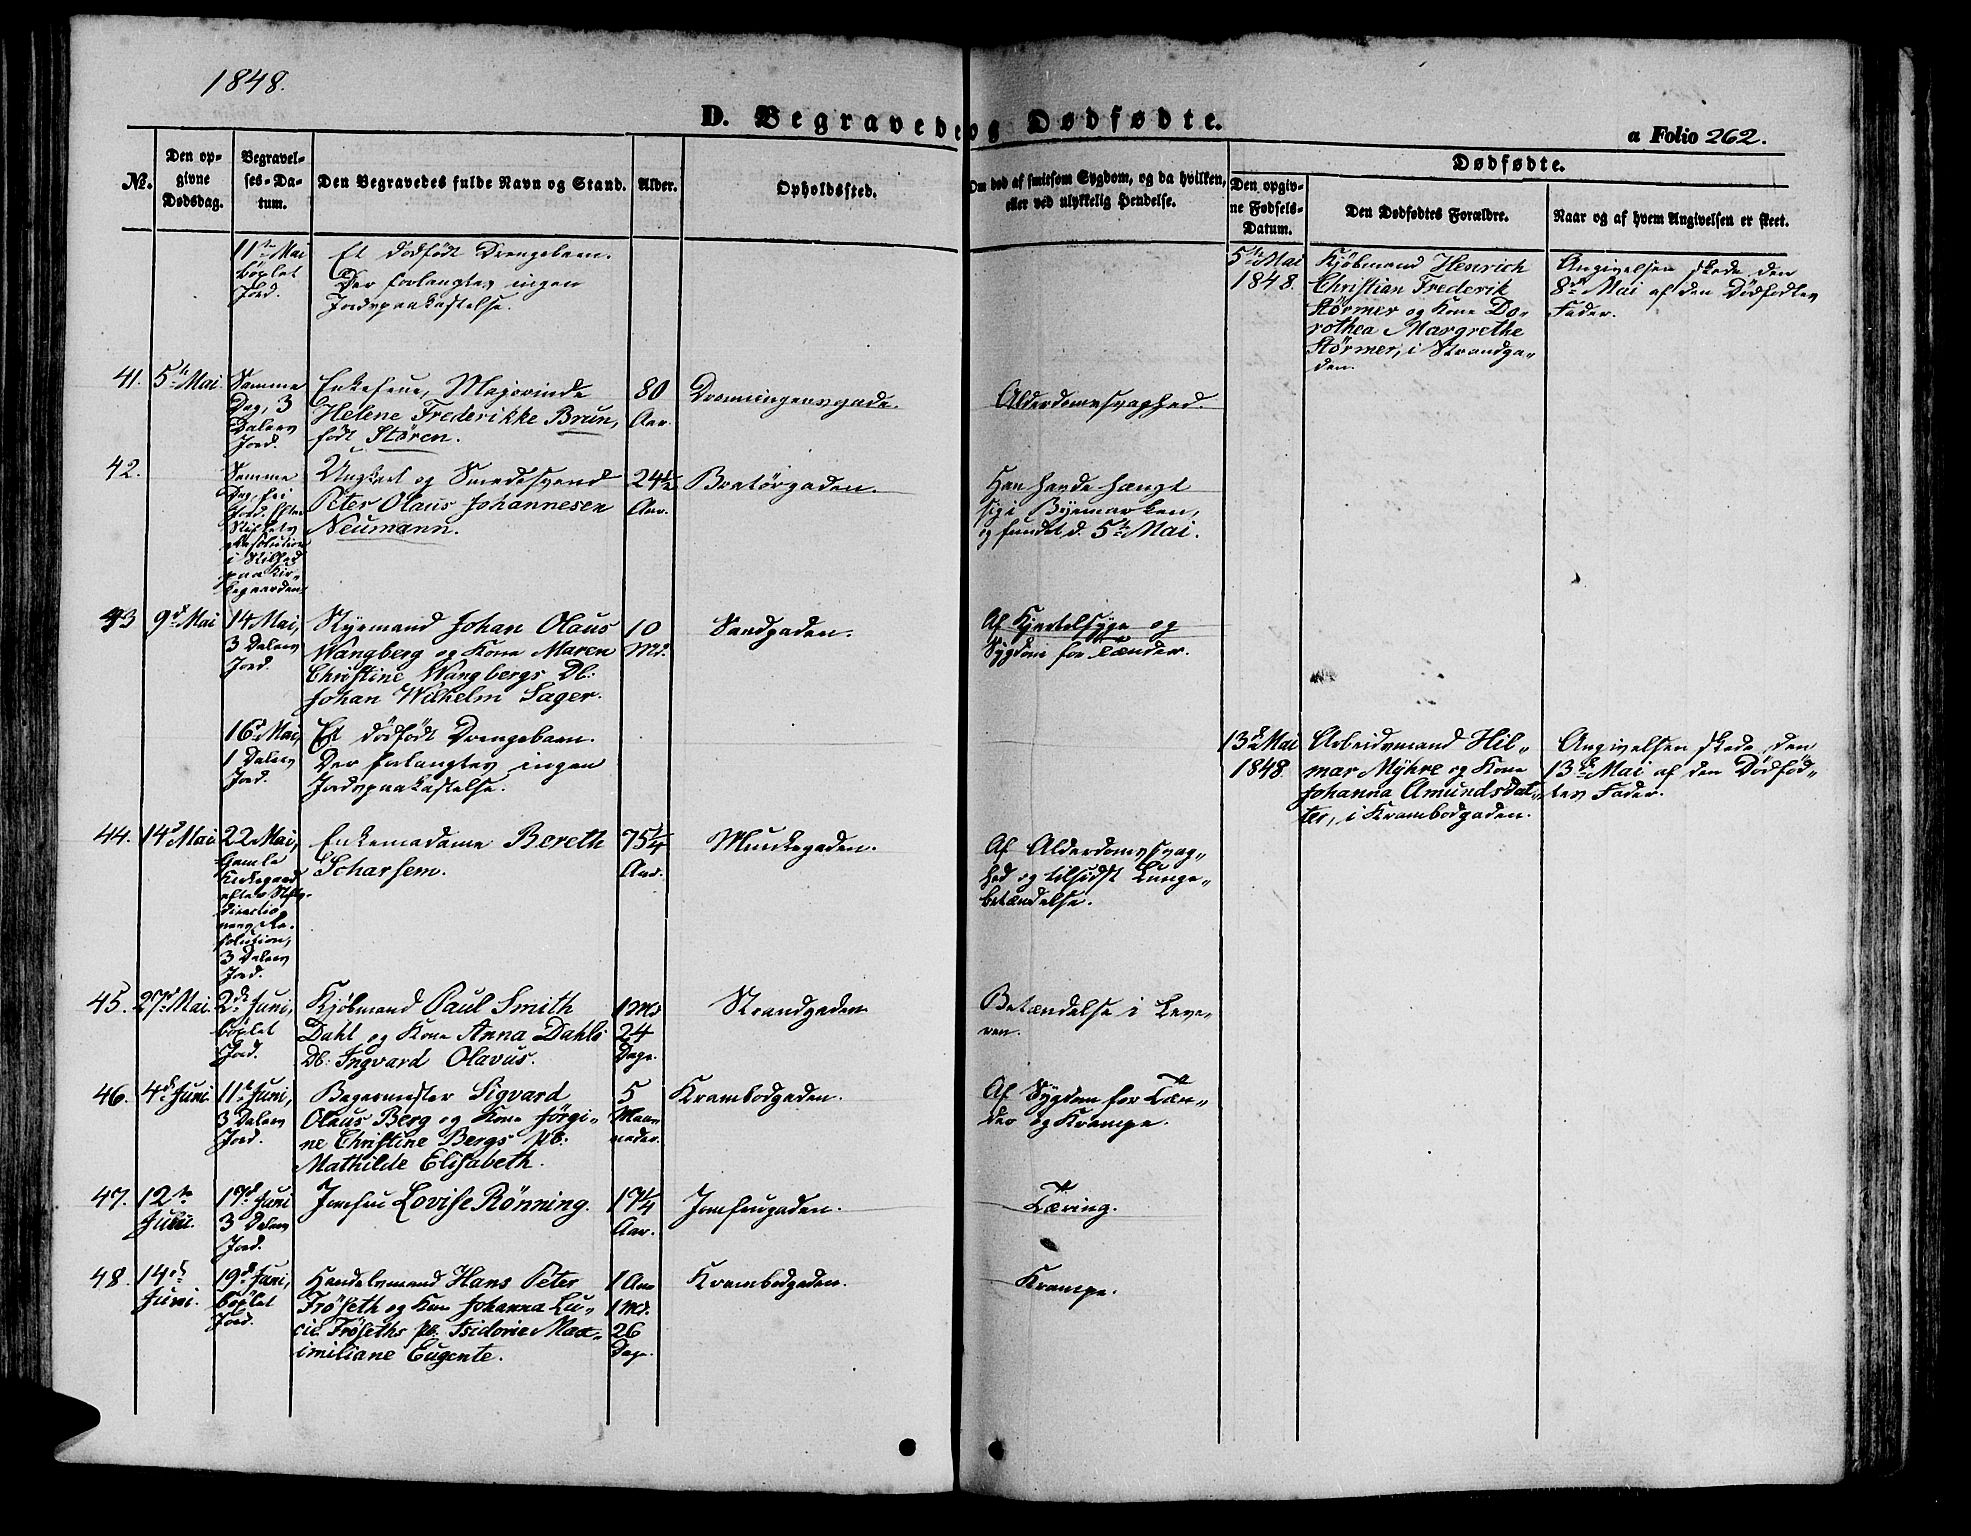 1848.
D. Begravede og Dødfødte.
a Folio 262.
No.
Den opgivne Dødsdag.
Begravelses-Datum.
Den Begravedes fulde Navn og Stand.
Alder.
Opholdssted.
Om død af smitsom Sygdom, og da hvilken, eller ved ulykkelig Hendelse.
Dødfødte.
Den opgivne Fødsels-Datum.
Den Dødfødtes Forældre.
Naar og af hvem Angivelsen er skeet.
11te Mai
Kjøbt
Jord.
Et dødfødt Drengebarn.
Der forlangtes ingen
Jordspaakastelse.
5te Mai
1848.
Kjøbmand Henrich
Christian Frederik
Störmer og Kone Do-
rothea Margrethe
Störmer, i Strandga-
den.
Angivelsen skede den
8de Mai af den Dödfödtes
Fader.
41.
5te Mai
Samme
Dag, 3
Dalers
Jord.
Enkefrue, Majorinde
Helene Frederikke Brun,
født Stören.
80
Aar.
Dronningensgade.
Alderdomssvaghed.
42.
Samme
Dag, fri
Jord. Efter
Stiftets
Resolution
i Stilhed
paa Kir-
kegaarden.
Ungkarl og Smedesvend
Peter Olaus Johannesen
Neumann.
24½
Aar.
Bratörgaden.
Han havde hængt
sig i Byemarken,
og fundet d. 5te Mai.
43
9de Mai
14 Mai,
3 Dalers
Jord.
Styrmand Johan Olaus
Wangberg og Kone Maren
Christine Wangbergs Db:
Johan Wilhelm Sager.
10
Md.
Sandgaden.
Af Kjertelsyge og
Sygdom for Tænder.
16de Mai,
1 Dalers
Jord.
Et dödfödt Drengebarn.
Der forlangtes ingen
Jordspaakastelse.
13de Mai
1848.
Arbeidsmand Hil-
mar Myhre og Kone
Johanna Amundsdat-
ter, i Krambodgaden.
Angivelsen skede den
13de Mai af den Dödföd-
tes Fader.
44.
14de Mai
22 Mai,
Gamle
Kirkegaard
efter Stifts-
directio-
nens Re-
solution,
3 Dalers
Jord.
Enkemadame Bereth
Scharsem.
75¼
Aar.
Munkegaden.
Af Alderdomssvag-
hed og tilsidst Lunge-
betændelse.
45.
27de Mai.
2de Juni,
Kjøbt
Jord.
Kjöbmand Paul Smith
Dahl og Kone Anna Dahls
Db: Ingvard Olavus.
1 Md
24
Dage.
Strandgaden
Betændelse i Leve-
ren.
46.
4de Juni
11te Juni,
3 Dalers
Jord.
Bagermester Sigvard
Olaus Berg og Kone Jörgi-
ne Christine Bergs Pb:
Mathilde Elisabeth.
5
Maa-
neder.
Krambodgaden.
Af Sygdom for Tæn-
der og Krampe.
47.
12te
Juni.
17de Juni
3 Dalers
Jord.
Jomfru Lovise Rönning.
17¼
Aar.
Jomfrugaden.
Tæring.
48.
14de
Juni.
19de Juni,
Kjøbt
Jord.
Handelsmand Hans Peter
Fröseth og Kone Johanna Lu-
cie Fröseths Pb. Isidorie Max-
imiliane Eugente.
1 Aar
1 Md.
26
Dage.
Krambodgaden.
Krampe.